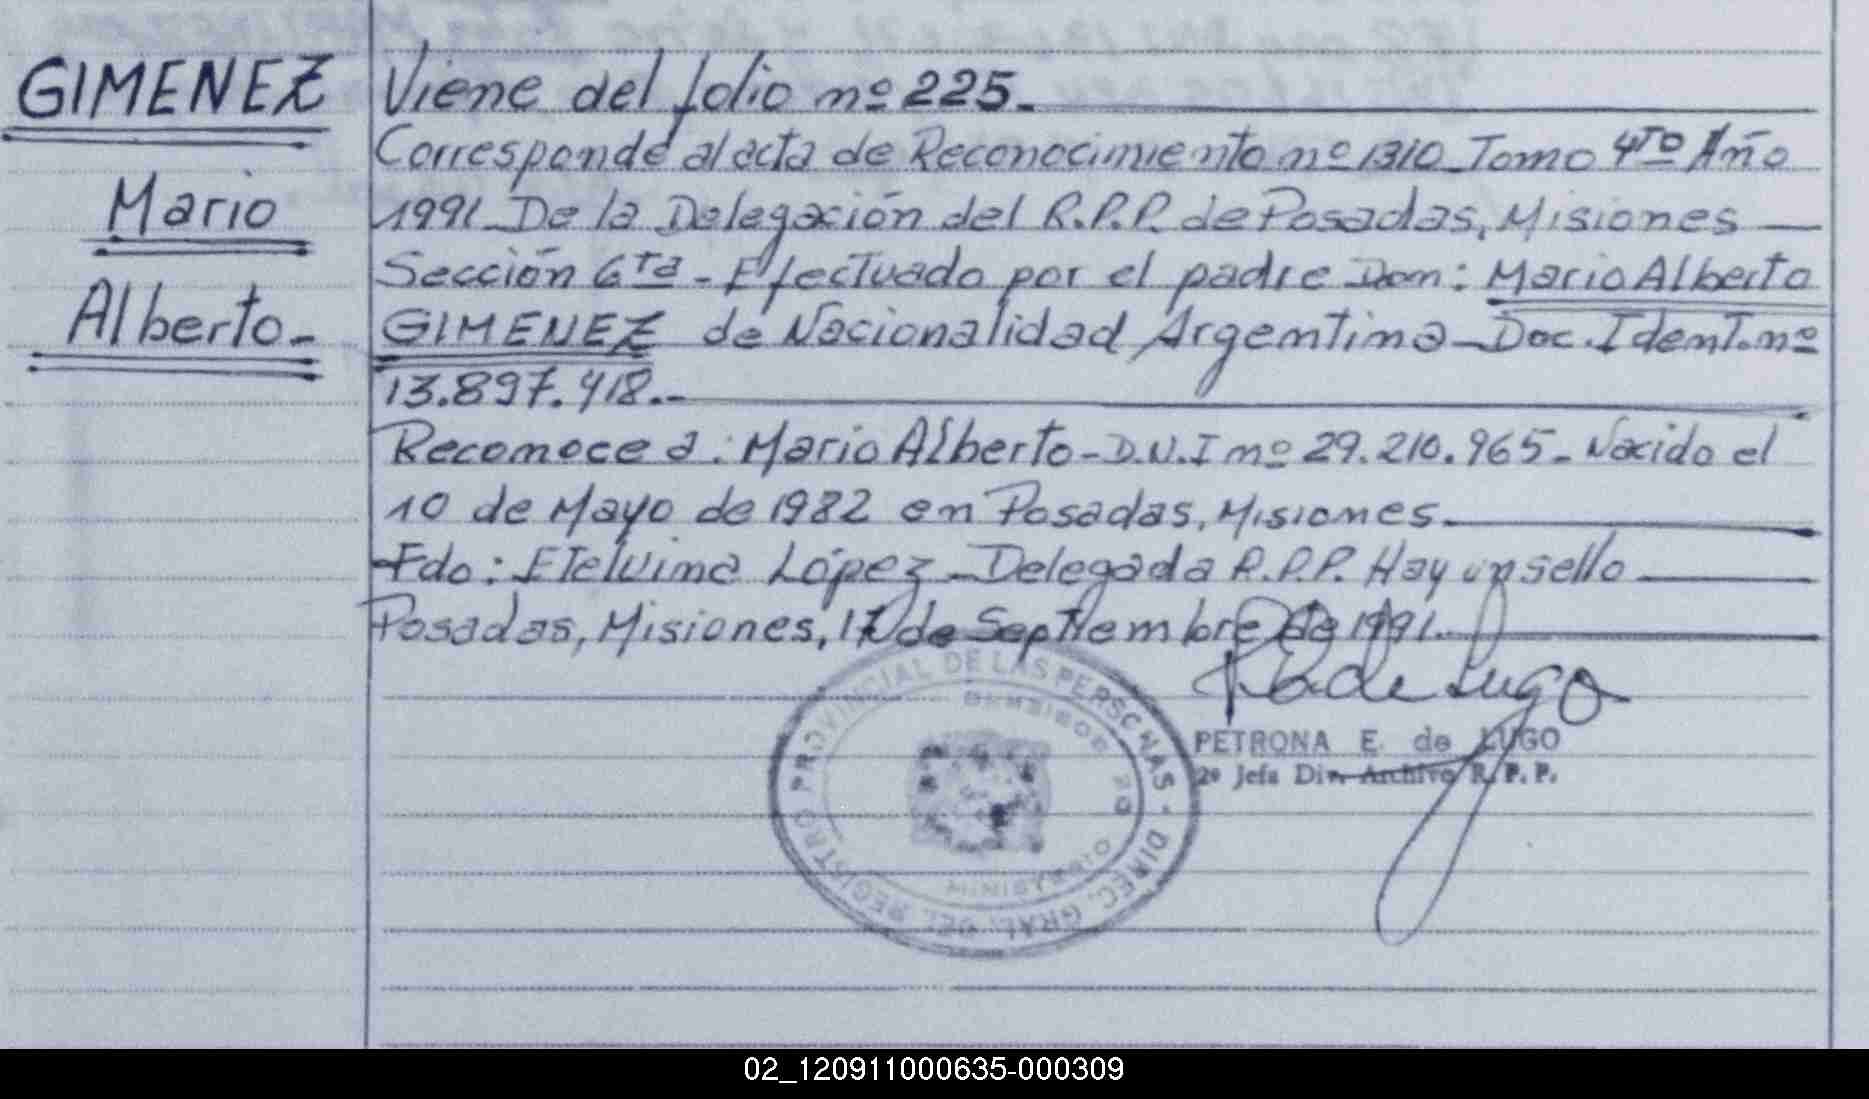 GIMENEZ
Mario
Alberto-
Viene del folio nº 225.
Corresponde al acta de Reconocimiento nº 1310 Tomo 4to Año
1991 De la Delegación del R.P.P. de Posadas, Misiones
Sección 6ta - Efectuado por el padre Don: Mario Alberto
GIMENEZ de Nacionalidad Argentina - Doc. Ident. nº
13.897.418.-
Reconoce a: Mario Alberto - D.N.I nº 29.210.965 - Nacido el
10 de Mayo de 1982 en Posadas, Misiones.
Fdo: Etelvina López - Delegada R.P.P. Hay un sello
Posadas, Misiones, 17 de Septiembre de 1991.
de Lugo
DIREC. GRAL. DEL REGISTRO PROVINCIAL DE LAS PERSONAS
MINISTERIO DE GOBIERNO
PETRONA E. de LUGO
2º Jefa Div. Archivo R.P.P.
02_120911000635-000309